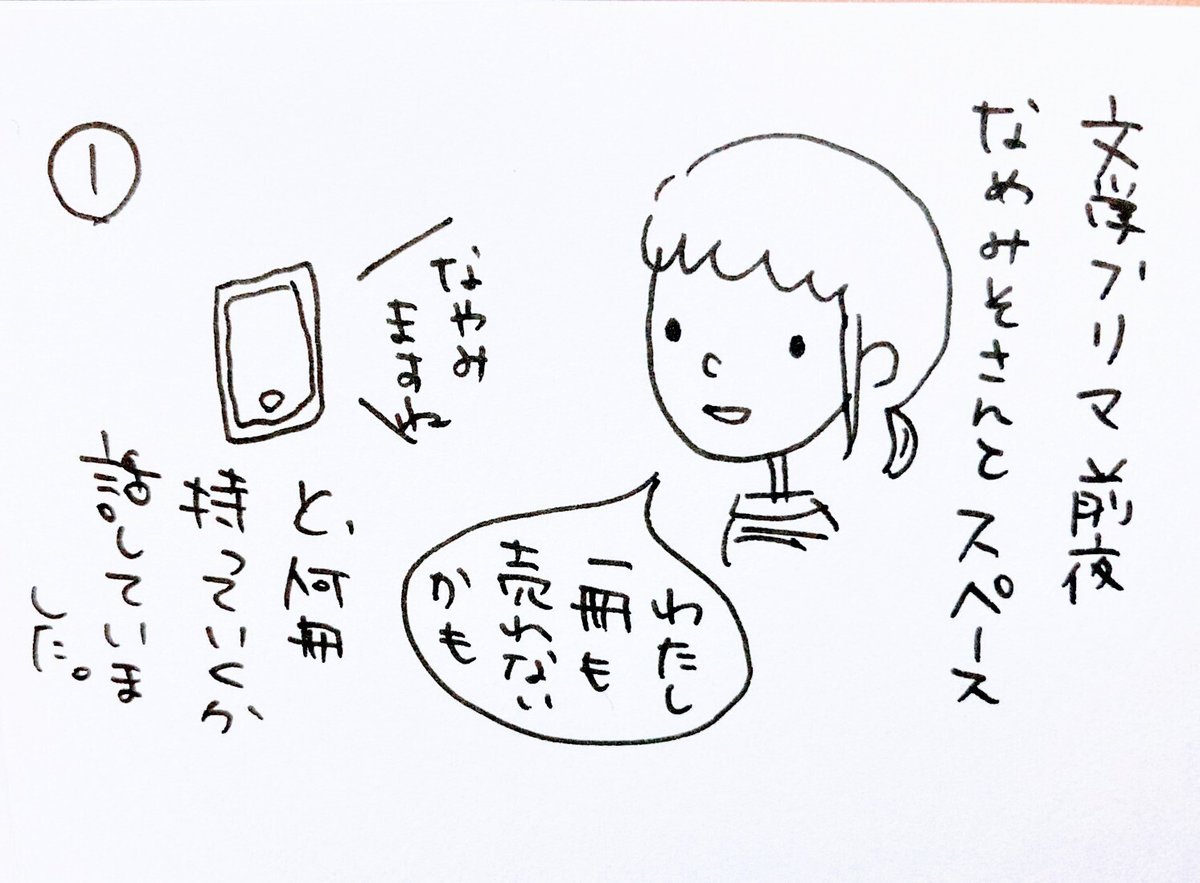 文学フリマ前夜
なめみそさんとスペース
わたし
一冊も
売れない
かも
なやみ
ますね
と、何冊
持っていくか
話していま
した。
①